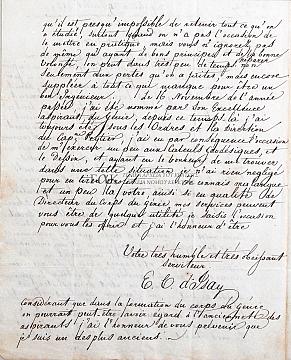 qu'il est presqu'impossible de retenir tout ce qu'on
a étudié, surtout quand on n'a pas l'occasion de
le mettre en pratique, mais vous n'ignorez pas
de même qu'ayant de bons principes et de la bonne
volonté, l'on peut dans très peu de temps réparer non
seulement aux pertes qu'on a faites, mais encore
suppléer à tout ce qui manque pour être un
bon Ingénieur. Le 18 Novembre de l'année
passée j'ai été nommé par Son Excellence
aspirant du Génie, depuis ce temps là j'ai
toujours été sous les Ordres et la Direction
du Cap. j'ai eu par conséquence l'occasion
de m'exercer un peu aux Calculs
le Dessin, et ayant eu le bonheur de me trouver
dans une telle situation je n'ai rien négligé
pour en tirer Je connais
et un peu Si en qualité de
Directeur du Corps du Génie mes services peuvent
vous être de quelque utilité je saisis l'occasion
pour vous les offrir et j'ai l'honneur d'être
Votre très humble et très obéissant
Serviteur
E. T. d'Isay
Considérant que dans la formation du corps du Génie
on pourrait peut-être avoir égard à l'ancienneté des
aspirants j'ai l'honneur de vous prévenir que
je suis un des plus anciens.